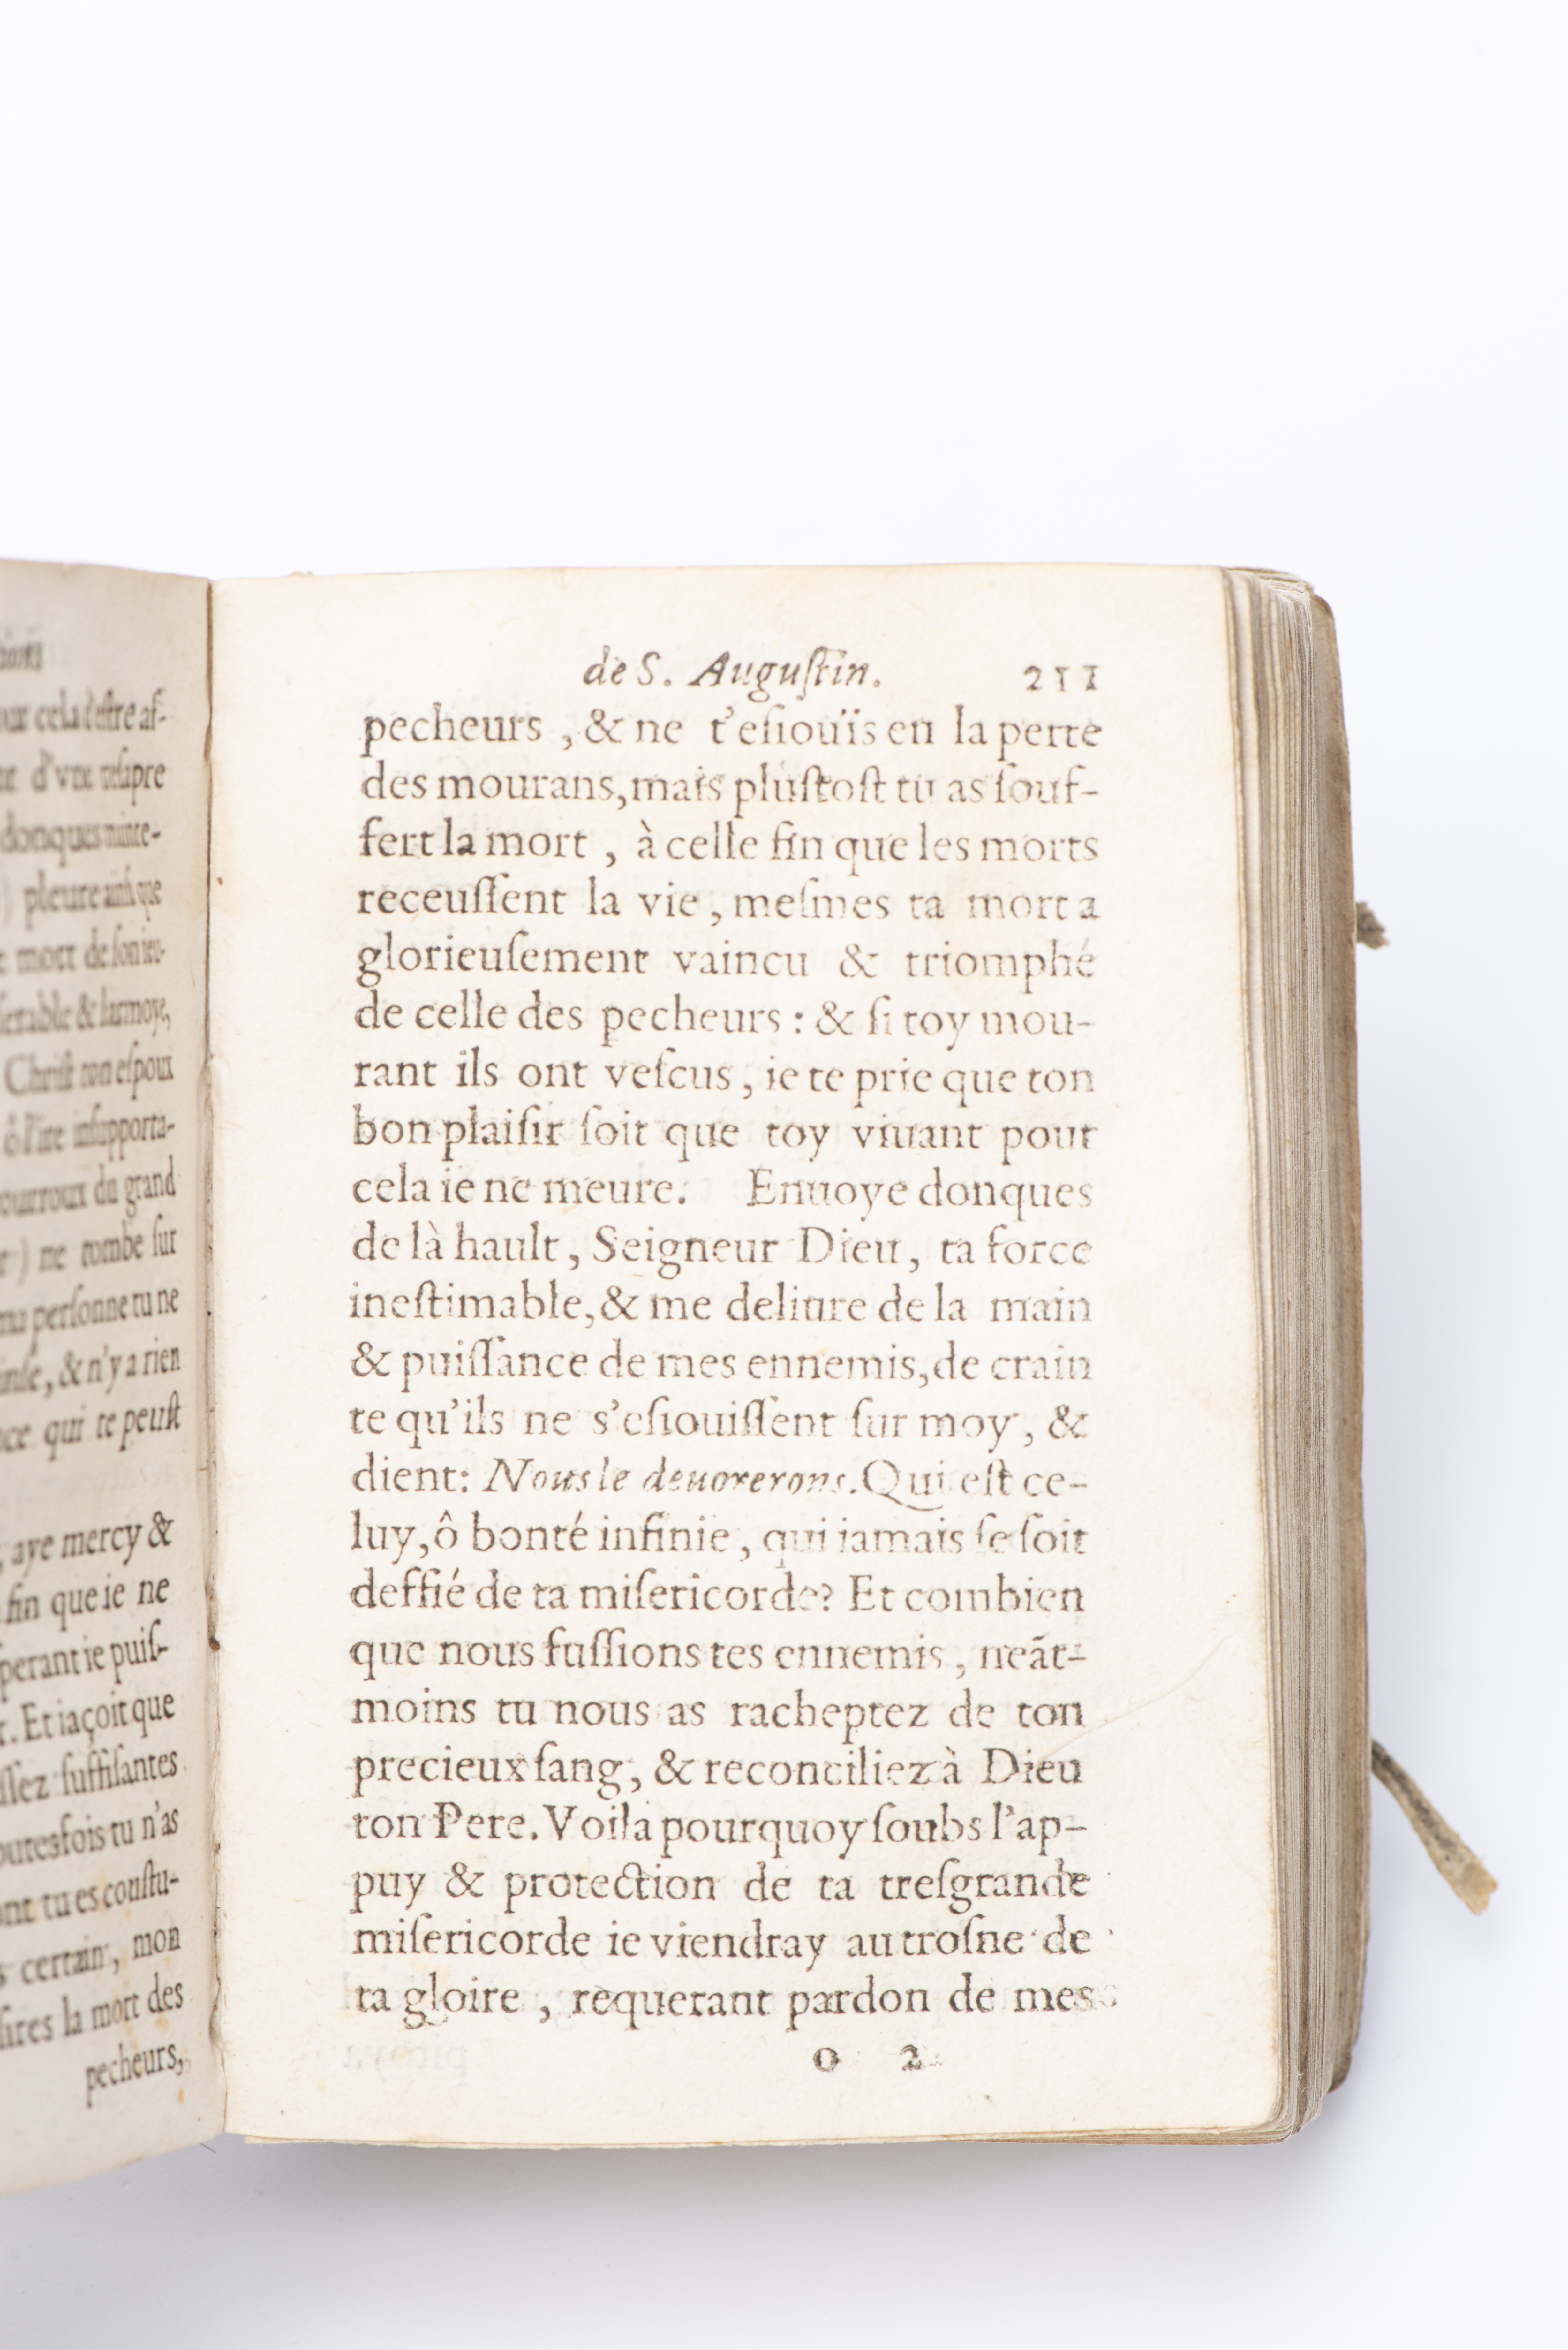 ur cela l'estre af-
d'vne
donques
pleure ainsi que
mort de son
& larmoye,
Christ ton espoux
ô l'ire insupporta-
courroux du grand
) ne tombe sur
personne tu ne
, & n'y a rien
ce qui te peust
, aye mercy &
fin que ie ne
perant ie puiſ-
r. Et iaçoit que
ſſez ſuffiſantes
outesfois tu n'as
ont tu es conſtu-
s certain, mon
ſires la mort des
pecheurs,
de S. Auguſtin. 211
pecheurs, & ne t'eſiouïs en la perte
des mourans, mais pluſtoſt tu as ſouf-
fert la mort, à celle fin que les morts
receuſſent la vie, meſmes ta mort a
glorieuſement vaincu & triomphé
de celle des pecheurs : & ſi toy mou-
rant ils ont veſcus, ie te prie que ton
bon plaiſir ſoit que toy viuant pour
cela ie ne meure. Enuoye donques
de là hault, Seigneur Dieu, ta force
ineſtimable, & me deliure de la main
& puiſſance de mes ennemis, de crain
te qu'ils ne s'eſiouiſſent ſur moy, &
dient: Nous le deuorerons. Qui eſt ce-
luy, ô bonté infinie, qui iamais ſe ſoit
deffié de ta miſericorde? Et combien
que nous fuſſions tes ennemis, neãt-
moins tu nous as racheptez de ton
precieux ſang, & reconciliez à Dieu
ton Pere. Voila pourquoy ſoubs l'ap-
puy & protection de ta treſgrande
miſericorde ie viendray au troſne de
ta gloire, requerant pardon de mes
O 2